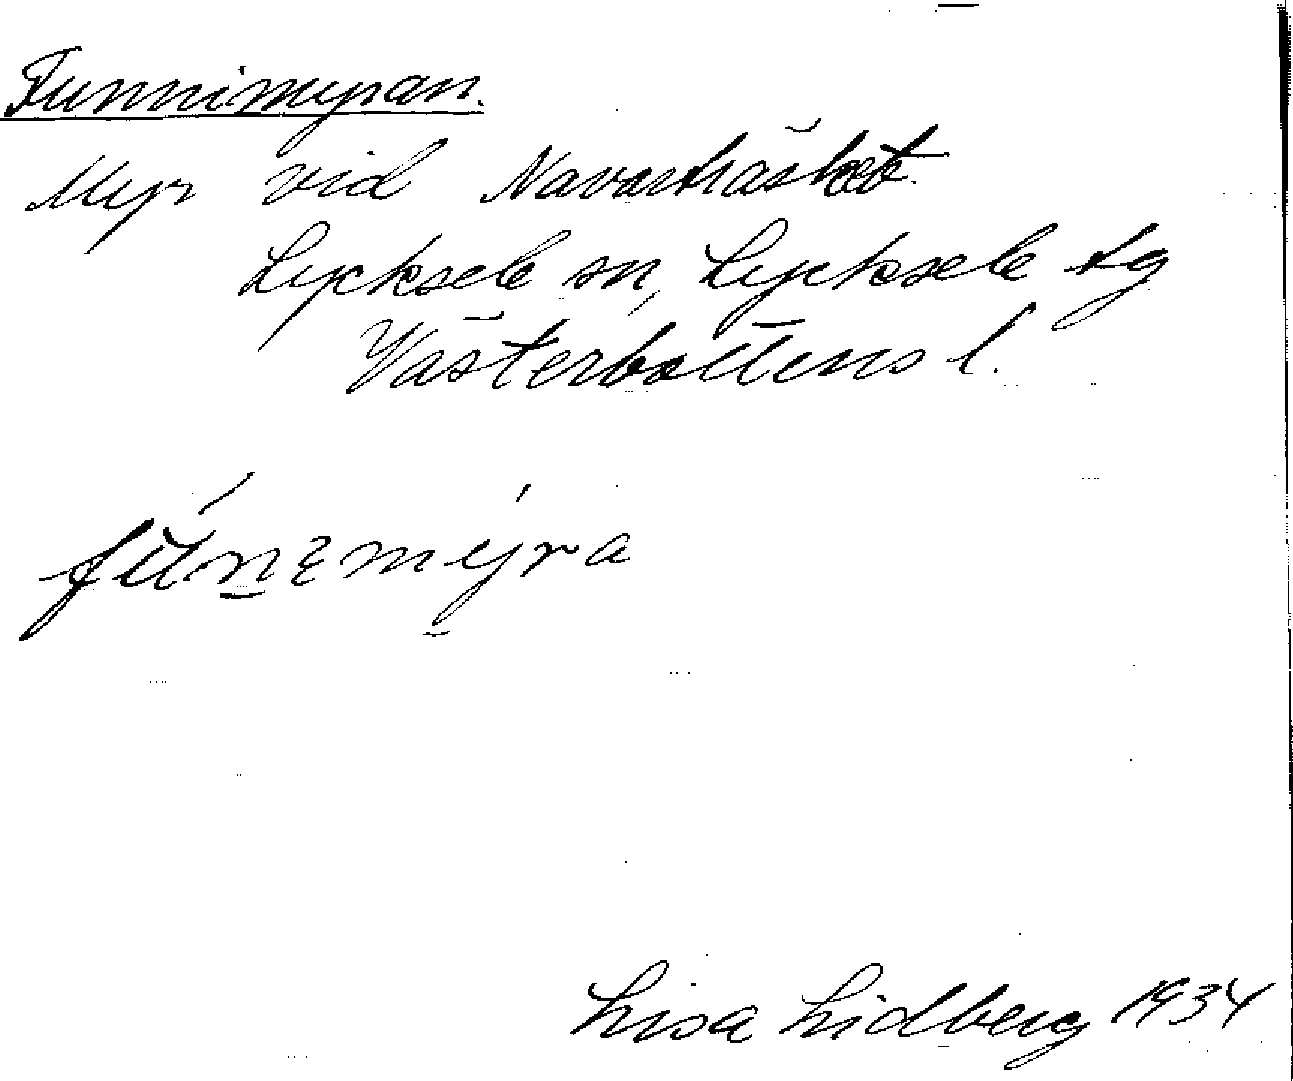 Funnimyran.
Myr vid Navarträsket.
Lycksele sn, Lycksele tg
Västerbottens l.
Lisa Lidberg 1934